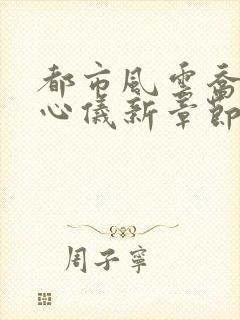 都市風雲喬
心儀新章節
周子寧